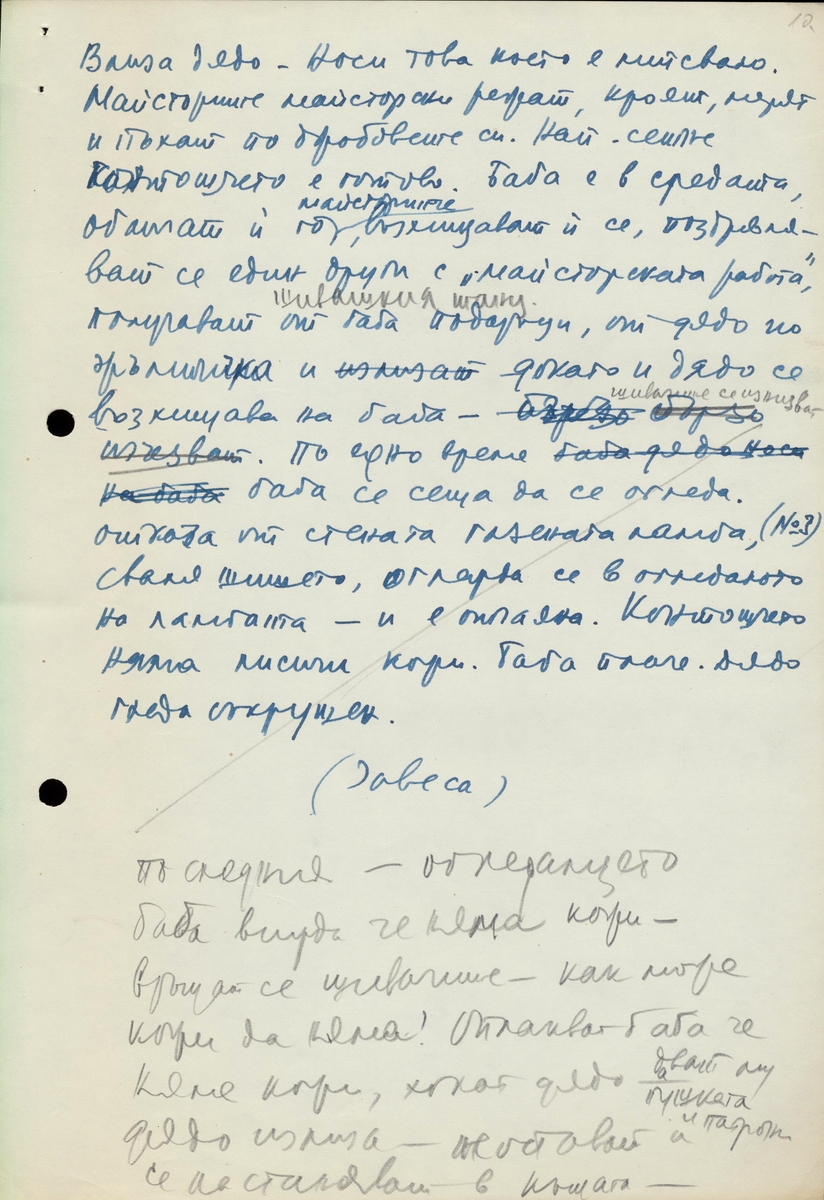 12
Влиза дядо – Носи това което е липсвало.
Майсторите майсторски режат, кроят, мерят
и пъхат по джобовете си. Най-сетне
контошчето е готово. Баба е в средата,
майсторите
обличат ѝ го, възхищават ѝ се, поздравля-
ват се един други с „майсторската работа",
шивашкия танц.
получават от баба подаръци, от дядо по
и излизат докато и дядо се
шивачите се изнизват
възхищава на баба – бързо бързо
изнизват. По едно време баба дядо носи
на баба баба се сеща да се огледа.
Откача от стената газената ламба, (№3)
сваля шишето, оглежда се в огледалото
на ламбата – и е отчаяна. Контошчето
няма лисичи кожи. Баба плаче. Дядо
гледа съкрушен.
(Завеса)
последния – огледалцето
баба вижда че няма кожи –
връщат се шивачите – как може
кожи да няма! Оплакват баба че
няма кожи, хокат дядо дават му
пушката
и патрони
дядо излиза – те остават и
се настаняват в къщата –